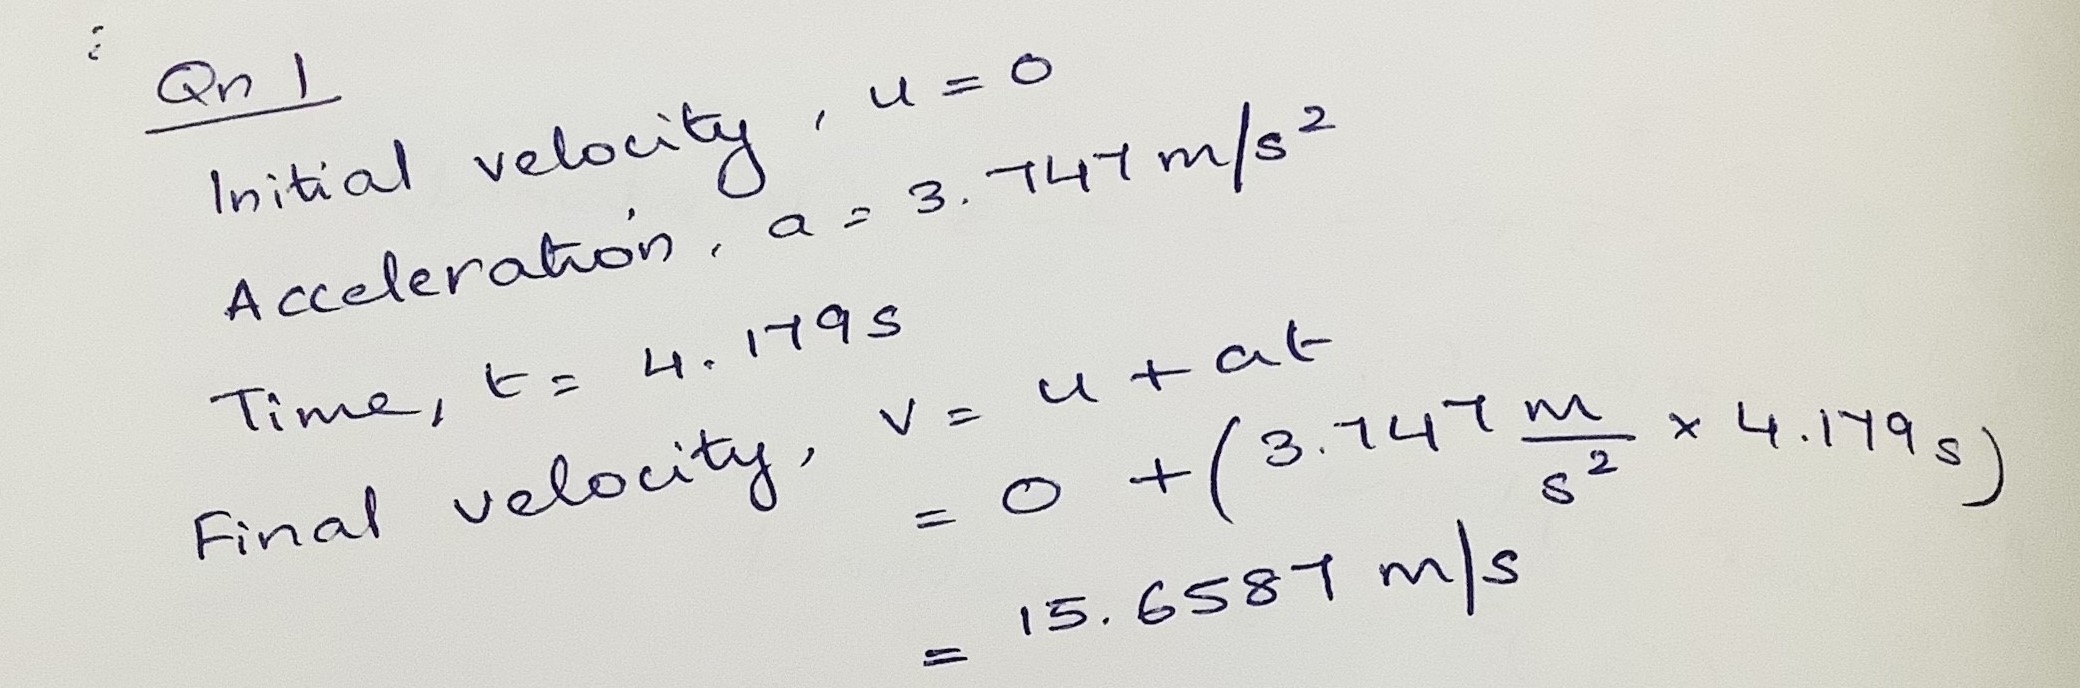 Qn 1
Initial velocity, u = 0
Acceleration, a = 3.747 m/s²
Time, t = 4.179 s
Final velocity, v = u + at
= 0 + (3.747 m/s² × 4.179 s)
= 15.6587 m/s